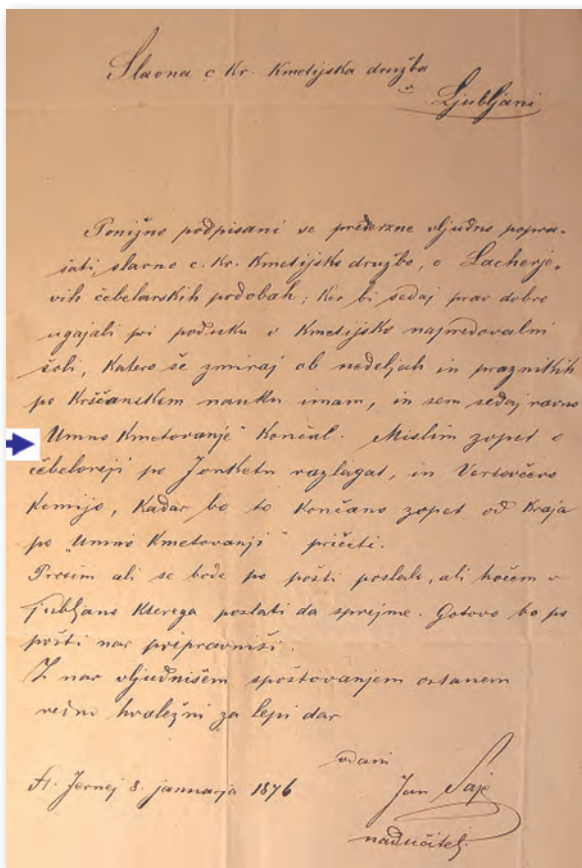 Slavna c. Kr. Kmetijska družba
v Ljubljani
Ponižno podpisani se prederzne vljudno popra-
šati, slavno c. Kr. Kmetijsko družbo, o Lacherje-
vih čebelarskih podobah; Ker bi sedaj prav dobro
ugajali pri poduku v Kmetijsko napredovalni
šoli, Katero še zmiraj ob nedeljah in praznikih
po Krščanskem nauku imam, in sem sedaj ravno
"Umno Kmetovanje" Končal. Mislim zopet o
čebeloreji po Jonketu razlagat, in Vertovčevo
Kemijo, Kadar bo to Končano zopet od Kraja
po "Umno Kmetovanji" pričeti.
Prosim ali se bode po pošti poslalo, ali hočem v
Ljubljano Kterega poslati da sprejme. Gotovo bo po
pošti nar pripravniši.
Z nar vljudnišem spoštovanjem ostanem
vedno hvaležni za lepi dar
vdani
St. Jernej 8. januarja 1876
Jan Saje
nadučitelj.